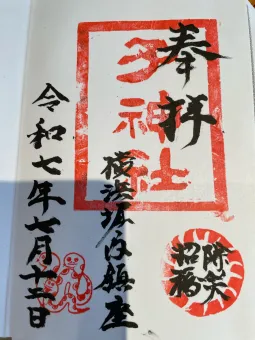 奉拝
多神社
横浜坪の内鎮座
除災
招福
令和七年七月十三日